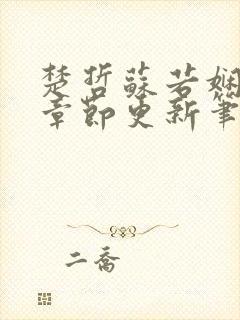 楚哲蘇若嫻
章節更新筆
二喬